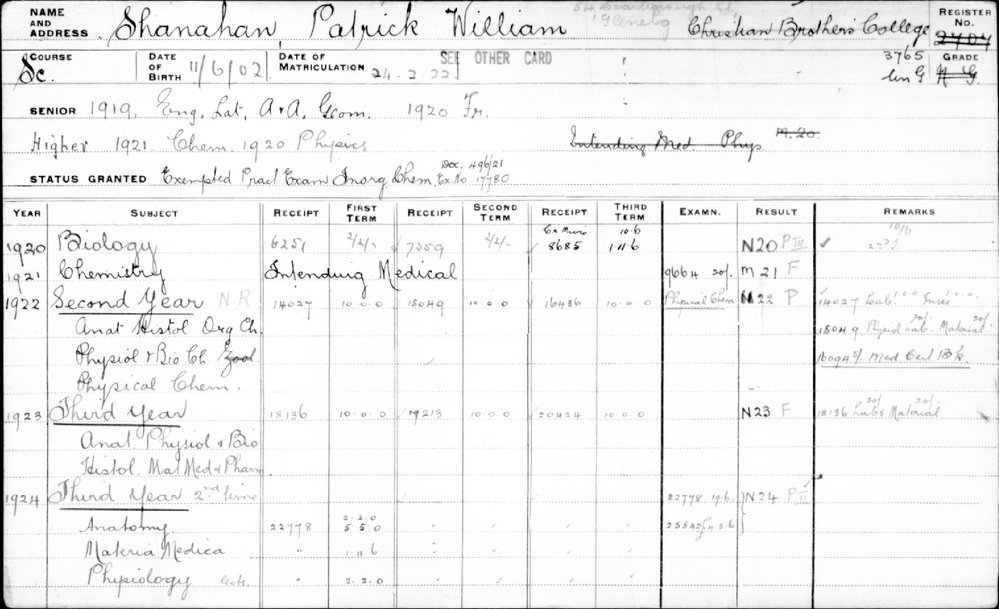 NAME AND ADDRESS Shanahan, Patrick William Glenelg Christian Brothers College REGISTER No. 2707
COURSE Sc. DATE OF BIRTH 11/6/02 DATE OF MATRICULATION 24-2-22 SEE OTHER CARD 3765 GRADE
SENIOR 1919. Eng, Lat, A+A, Geom. 1920 Fr.
Higher 1921 Chem. 1920 Physics Intending Med Phys M.20.
STATUS GRANTED Exempted Pract Exam Inorg. Chem. Doc. 496/21 Ex. No 17780
YEAR SUBJECT RECEIPT FIRST TERM RECEIPT SECOND TERM RECEIPT THIRD TERM EXAMN. RESULT REMARKS
1920 Biology 6251 2/4/- 7359 2/4/- 8685 10.6 1.11.6 N20 P III 10/6
1921 Chemistry Intending Medical 9664 20/- M 21 F
1922 Second Year N.R 14027 10.0.0 15049 10.0.0 16486 10.0.0 Physical Chem N 22 P 14027 Lab.
Anat Histol Org Ch. 15049 Physiol Lab. Material 20/-
Physiol & Bio Ch Zool Med Cert Bk.
Physical Chem.
1923 Third Year 18136 10.0.0 19213 10.0.0 20424 10.0.0 N23 F 18136 Labs 20/- Material 20/-
Anat. Physiol & Bio
Histol. Mat Med & Pharm
1924 Third Year 2nd time 22778 N24 P II
Anatomy 22778 2.2.0 5.5.0 "
Materia Medica " 1.11.6 "
Physiology " 2.2.0 "